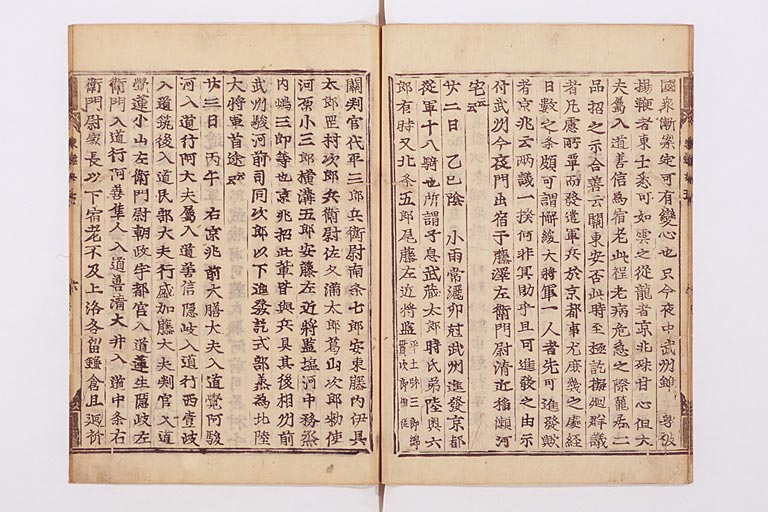 國衆漸案定可有變心也只今夜中武州雖 身被
揚鞭者東士悉可如雲之從龍者京兆殊甘心但大
夫属入道善信爲宿老此程老病危急之際籠居二
品招之示合善云關東安否此時至極訖擬廻群議
者凡慮所覃而發遣軍兵於京都事尤庶幾之處經
日數之条頗可謂懈緩大將軍一人者先可進發歟
者京兆云兩議一揆何非冥助乎且可進發之由示
付武州今夜門出宿于藤澤左衛門尉清近稲瀬河
宅云云
廿二日 乙巳陰 小雨常灑卯尅武州進發京都
從軍十八騎也所謂子息武蔵太郎時氏弟陸奥六
郎有時又北条五郎尾藤左近將監
關判官代平三郎兵衛尉南条七郎安東藤内伊具
太郎岳村次郎兵衛尉佐久満太郎葛山次郎勅使
河原小三郎横溝五郎安藤左近將監塩河中務烝
内嶋三郎等也京兆招此輩皆與兵具其後相州前
武州駿河前司同次郎以下進發訖式部烝爲北陸
大將軍首途云云
廿三日 丙午 右京兆前大膳大夫入道覺阿駿
河入道行阿大夫属入道善信隠岐入道行西壹岐
入道筑後入道民部大夫行盛加藤大夫判官入道
覺蓮小山左衛門尉朝政宇都宮入道蓮生隠岐左
衛門入道行阿善隼人入道善清大井入道中条右
衛門尉家長以下宿老不及上洛各留鎌倉且廻祈